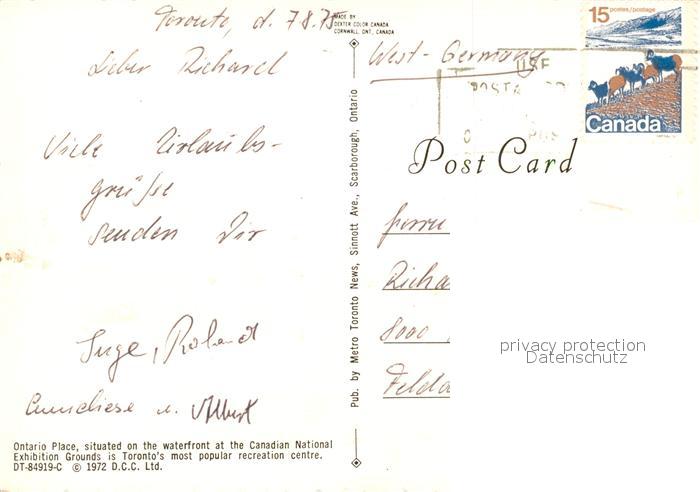 Toronto, d. 7.8.75
Lieber Richard
Viele Urlaubs-
grüße
senden Dir
Inge, Roland
Anneliese u. Albert
Ontario Place, situated on the waterfront at the Canadian National
Exhibition Grounds is Toronto's most popular recreation centre.
DT-84919-C © 1972 D.C.C. Ltd.
MADE BY
DEXTER COLOR CANADA
CORNWALL, ONT., CANADA
Pub. by Metro Toronto News, Sinnott Ave., Scarborough, Ontario
West-Germany
USE
POSTA
15 postes/postage
Canada
Post Card
Herrn
Richa
8000
Felda
privacy protection
Datenschutz